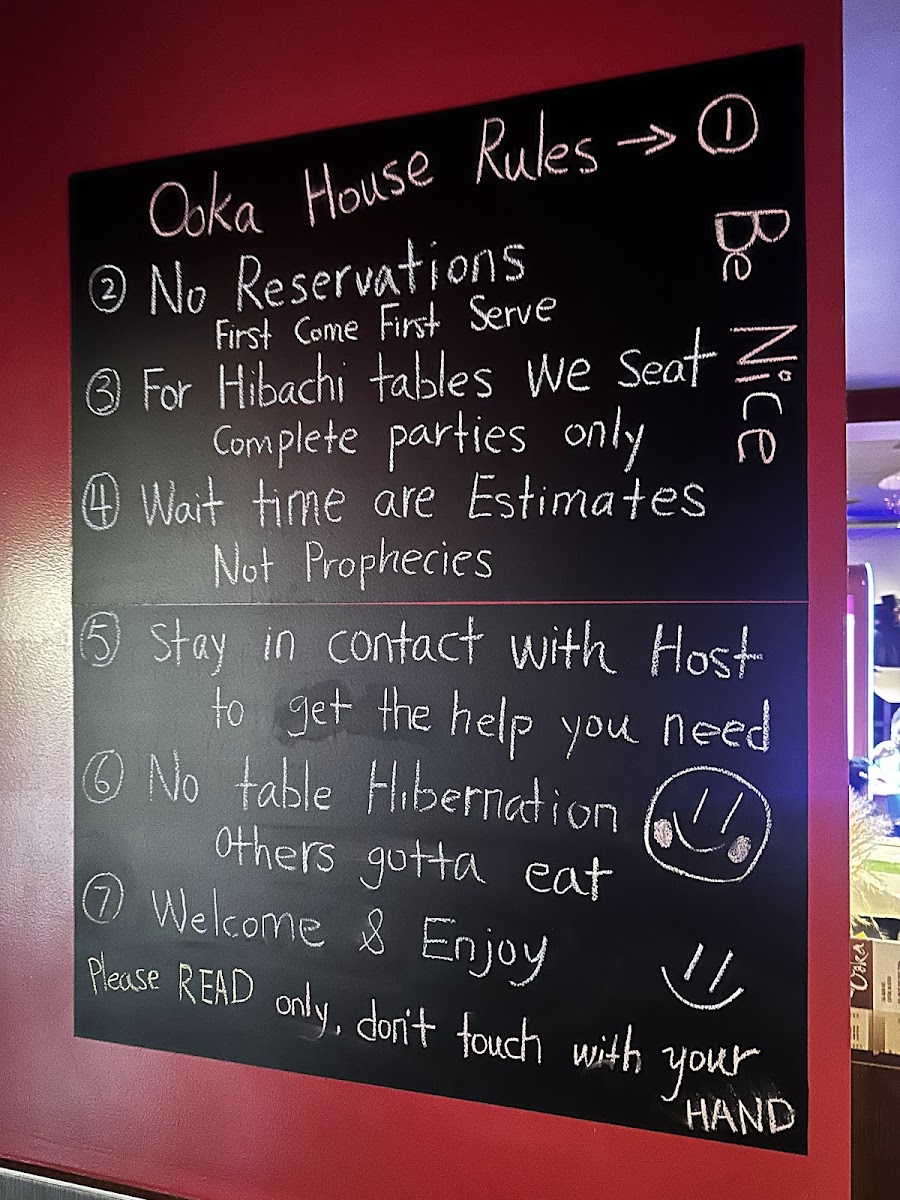 Ooka House Rules → ①
Be Nice
② No Reservations
First Come First Serve
③ For Hibachi tables we seat
Complete parties only
④ Wait time are Estimates
Not Prophecies
⑤ Stay in contact with Host
to get the help you need
⑥ No table Hibernation
Others gotta eat
⑦ Welcome & Enjoy
Please READ only, don't touch with your
HAND
Ooka